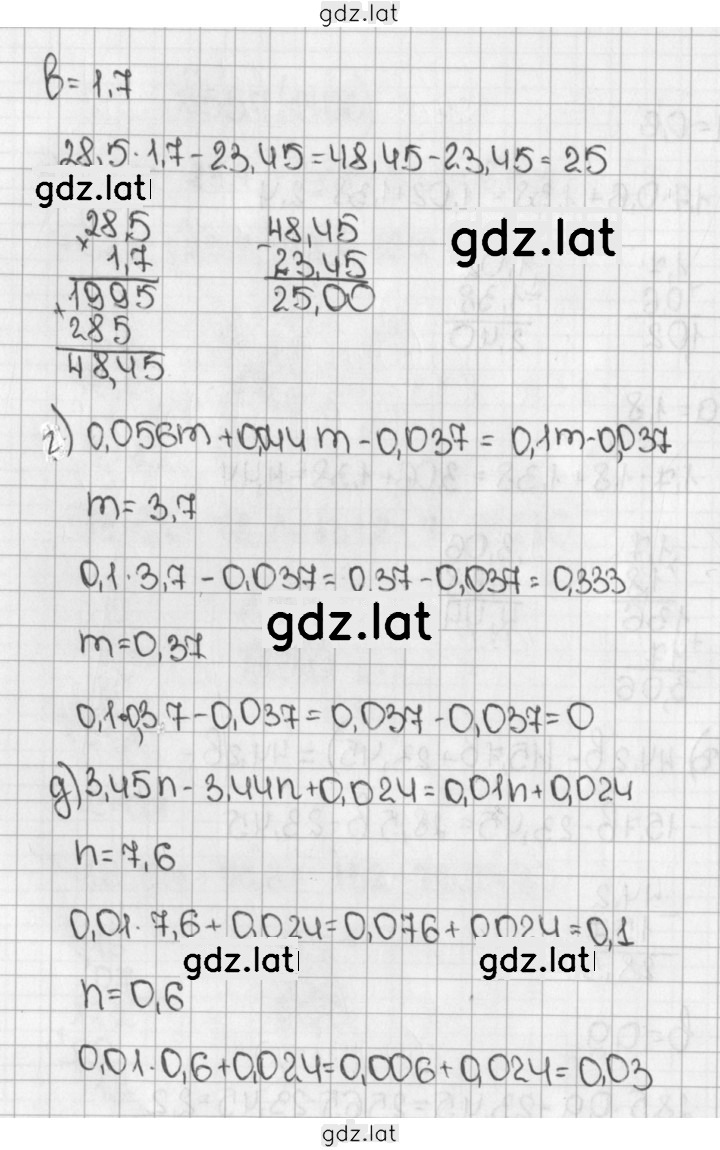 gdz.lat
в = 1,7
28,5 · 1,7 - 23,45 = 48,45 - 23,45 = 25
gdz.lat
28,5 48,45
× 1,7 - 23,45
gdz.lat
1995 25,00
+ 285
48,45
г) 0,056m + 0,044m - 0,037 = 0,1m - 0,037
m = 3,7
0,1 · 3,7 - 0,037 = 0,37 - 0,037 = 0,333
gdz.lat
m = 0,37
0,1 · 0,37 - 0,037 = 0,037 - 0,037 = 0
д) 3,45n - 3,44n + 0,024 = 0,01n + 0,024
n = 7,6
0,01 · 7,6 + 0,024 = 0,076 + 0,024 = 0,1
gdz.lat gdz.lat
n = 0,6
0,01 · 0,6 + 0,024 = 0,006 + 0,024 = 0,03
gdz.lat